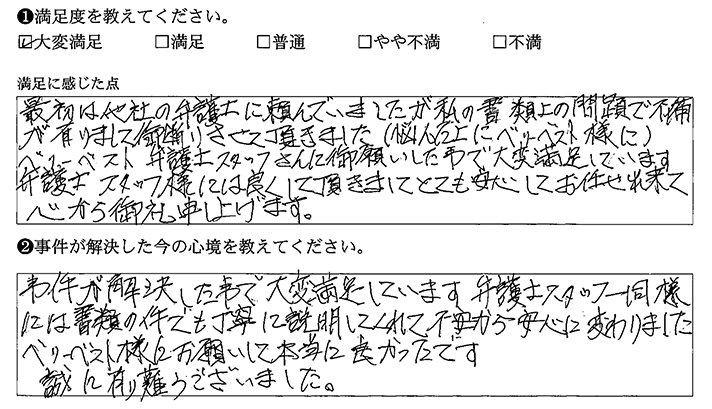 ❶満足度を教えてください。
☑大変満足 □満足 □普通 □やや不満 □不満
満足に感じた点
最初は他社の弁護士に頼んでいましたが私の書類上の問題で不備
が有りまして御断りさせて頂きました(悩んだ上にベリーベスト様に)
ベリーベスト弁護士スタッフさんに御願いした事で大変満足しています
弁護士スタッフ様には良くして頂きましてとても安心してお任せ出来て
心から御礼申し上げます。
❷事件が解決した今の心境を教えてください。
事件が解決した事で大変満足しています弁護士スタッフ一同様
には書類の件でも丁寧に説明してくれて不安から安心に変わりました
ベリーベスト様にお願いして本当に良かったです
誠に有り難うございました。